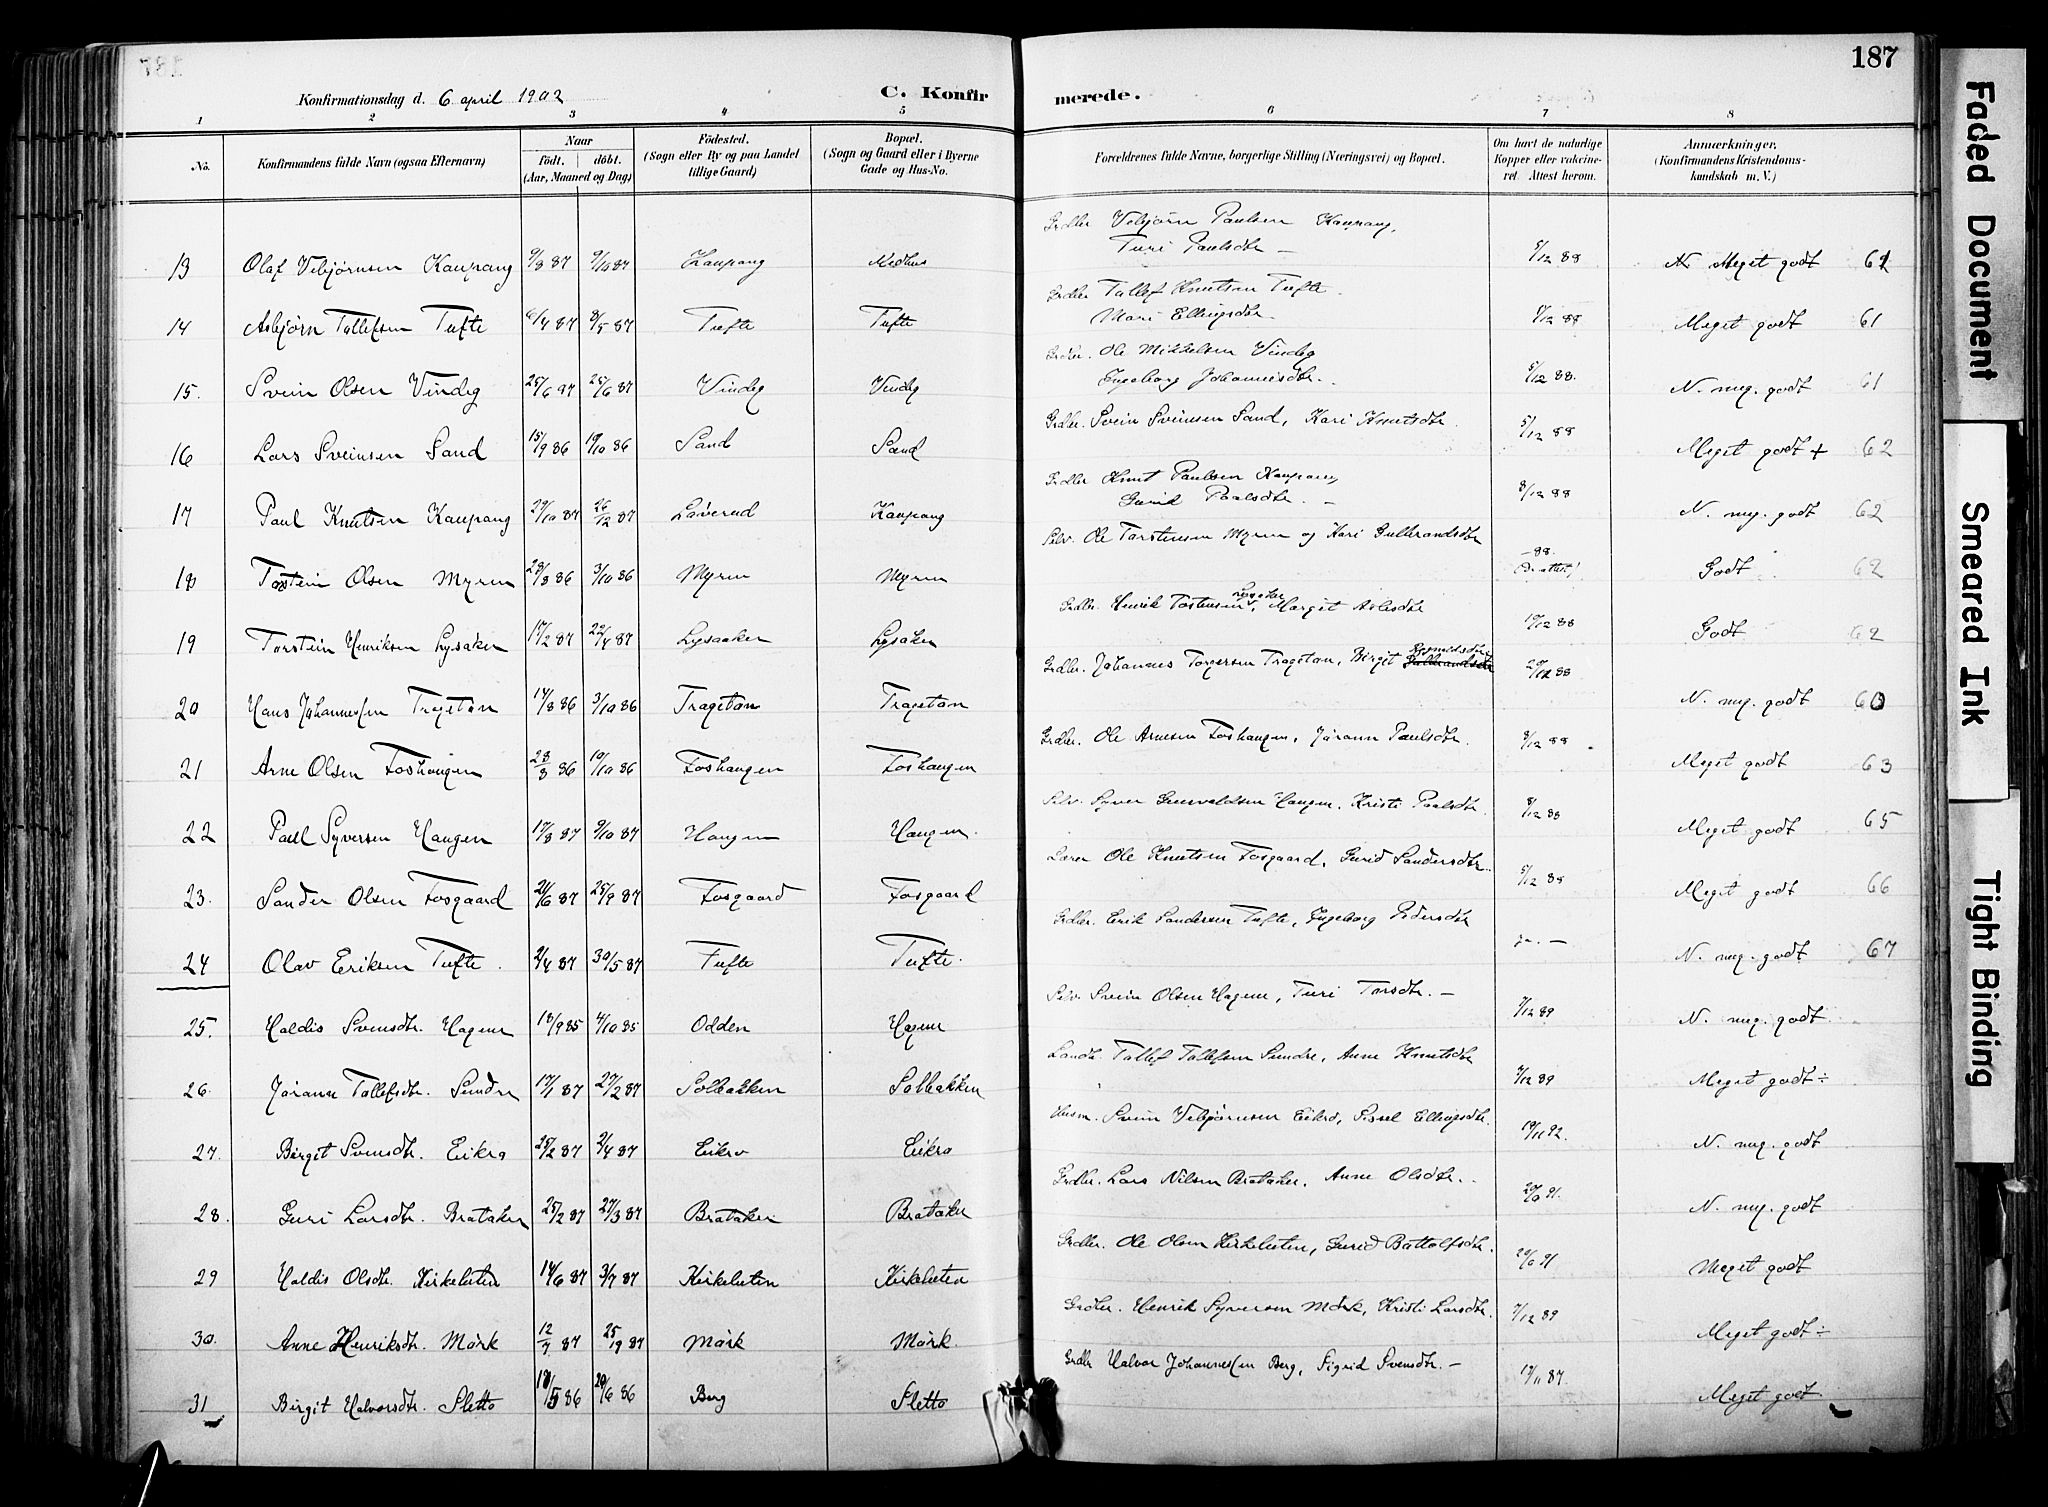 187
Konfirmationsdag d. 6 april 1902
C. Konfirmerede.
1 2 3 4 5 6 7 8
No.
Konfirmandens fulde Navn (ogsaa Efternavn)
Naar
født. døbt.
(Aar, Maaned og Dag)
Fødested.
(Sogn eller By og paa Landet
tillige Gaard)
Bopæl.
(Sogn og Gaard eller i Byerne
Gade og Hus-No.
Forældrenes fulde Navne, borgerlige Stilling (Næringsvei) og Bopæl.
Om havt de naturlige
Kopper eller vakcine-
ret. Attest herom.
Anmærkninger,
(Konfirmandens Kristendoms-
kundskab m. V.)
Grdbr. Vebjørn Paulsen Kaupang,
Turi Paulsdtr —
13 Olaf Vebjørnsen Kaupang 9/8 87 9/10 87 Kaupang Medhus 5/12 88 N. Meget godt 61
Grdbr Tollef Knutsen Tufte.
Mari Ellingsdtr.
14 Asbjørn Tollefsen Tufte 6/4 87 8/5 87 Tufte Tufte Meget godt 61
Grdbr. Ole Mikkelsen Vindeg
Ingeborg Johannesdtr.
15. Svein Olsen Vindeg 25/6 87 Vindeg Vindeg 5/12 88. N. meg. godt 61
Grdbr. Svein Sveinsen Sand, Kari Knutsdtr.
16 Lars Sveinsen Sand 15/9 86 Sand Sand 5/12 88 Meget godt + 62
Grdbr Knut Paulsen Kaupang
Gurid Paalsdtr. —
17 Paul Knutsen Kaupang 29/10 87 26/12 87 Løverud Kaupang 8/12 88 N. meg. godt 62
Selv. Ole Torstensen Myren og Kari Gulbrandsdtr
18 Tostein Olsen Myren 28/8 86 3/10 86 Myren Myren —88. Godt 62
Grdbr. Henrik Tostensen Lysaker, Margit Aslesdtr
19 Torstein Henriksen Lysaker 17/2 87 22/4 87 Lysaaker Lysaker 19/12 88 Godt 62
Grdbr. Johannes Torgersen Trageton, Birgit Gulbrandsdtr
20 Hans Johannessen Trageton 14/8 86 3/10 86 Trageton Trageton 29/12 88 N. meg. godt 60
Grdbr. Ole Arnesen Foshaugen, Jørann Paulsdtr.
21 Arne Olsen Foshaugen 23/8 86 10/10 86 Foshaugen Foshaugen 8/12 88 Meget godt 63
Selv. Syver Gunvaldsen Haugen, Kristi Paalsdtr.
22 Paul Syversen Haugen 17/8 87 9/10 87 Haugen Haugen. 8/12 88 Meget godt 65
Lærer Ole Knutsen Fosgaard, Gurid Sandersdtr.
23. Sander Olsen Fosgaard 25/9 87 Fosgaard Fosgaard 5/12 88 Meget godt 66
Grdbr. Erik Sandersen Tufte, Ingeborg Pedersdtr
24 Olav Eriksen Tufte. 2/4 87 30/5 87 Tufte Tufte. ja. — N. meg. godt 67
Selv. Svein Olsen Hagene, Turi Torsdtr. —
25. Haldis Svensdtr. Hagene 18/9 85 4/10 85 Odden Hagene 7/12 89 N. meg. godt
Landh. Tollef Tollefsen Sundre, Anne Knutsdtr
26. Jørann Tollefsdtr. Sundre 17/1 87 27/2 87 Solbakken Solbakken 7/12 89 Meget godt ÷
Husm. Svein Vebjørnsen Eikro, Sissel Ellingsdtr.
27. Birget Svensdtr. Eikro 25/2 87 2/4 87 Eikro Eikro 19/11 92. N. meg. godt
Grdbr. Lars Nilsen Brataker, Anne Olsdtr.
28. Guri Larsdtr. Brataker 25/2 87 27/3 87 Brataker Brataker N. meg. godt
Grdbr. Ole Olsen Kirkeluten, Gurid Bottolfsdtr.
29 Haldis Olsdtr. Kirkeluten 14/6 87 3/7 87 Kirkeluten Kirkeluten 20/6 91 Meget godt
Grdbr. Henrik Syversen Mørk, Kristi Larsdtr.
30. Anne Henriksdtr. Mørk 12/7 87 Mørk Mørk. 7/12 89 Meget godt ÷
Grdbr Halvor Johannessen Berg, Sigrid Svensdtr. —
31 Birgit Halvorsdtr. Sletto 18/5 86 20/6 86 Berg Sletto 19/11 87. Meget godt
Faded Document
Smeared Ink
Tight Binding